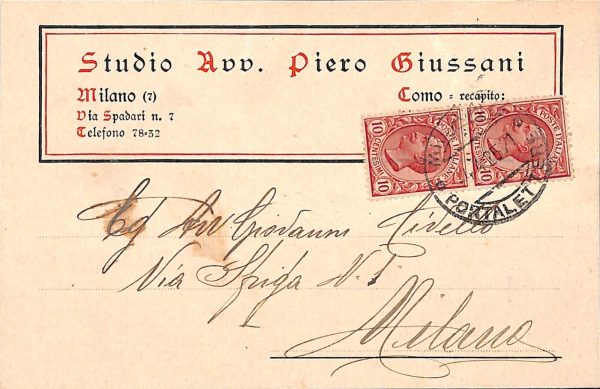 Studio Avv. Piero Giussani
Milano (7)
Como - recapito:
Via Spadari n. 7
Telefono 78-32
POSTE ITALIANE
CENTESIMI 10
POSTE ITALIANE
CENTESIMI 10
PORTALET
Avv Giovanni
Via Spiga N.
Milano